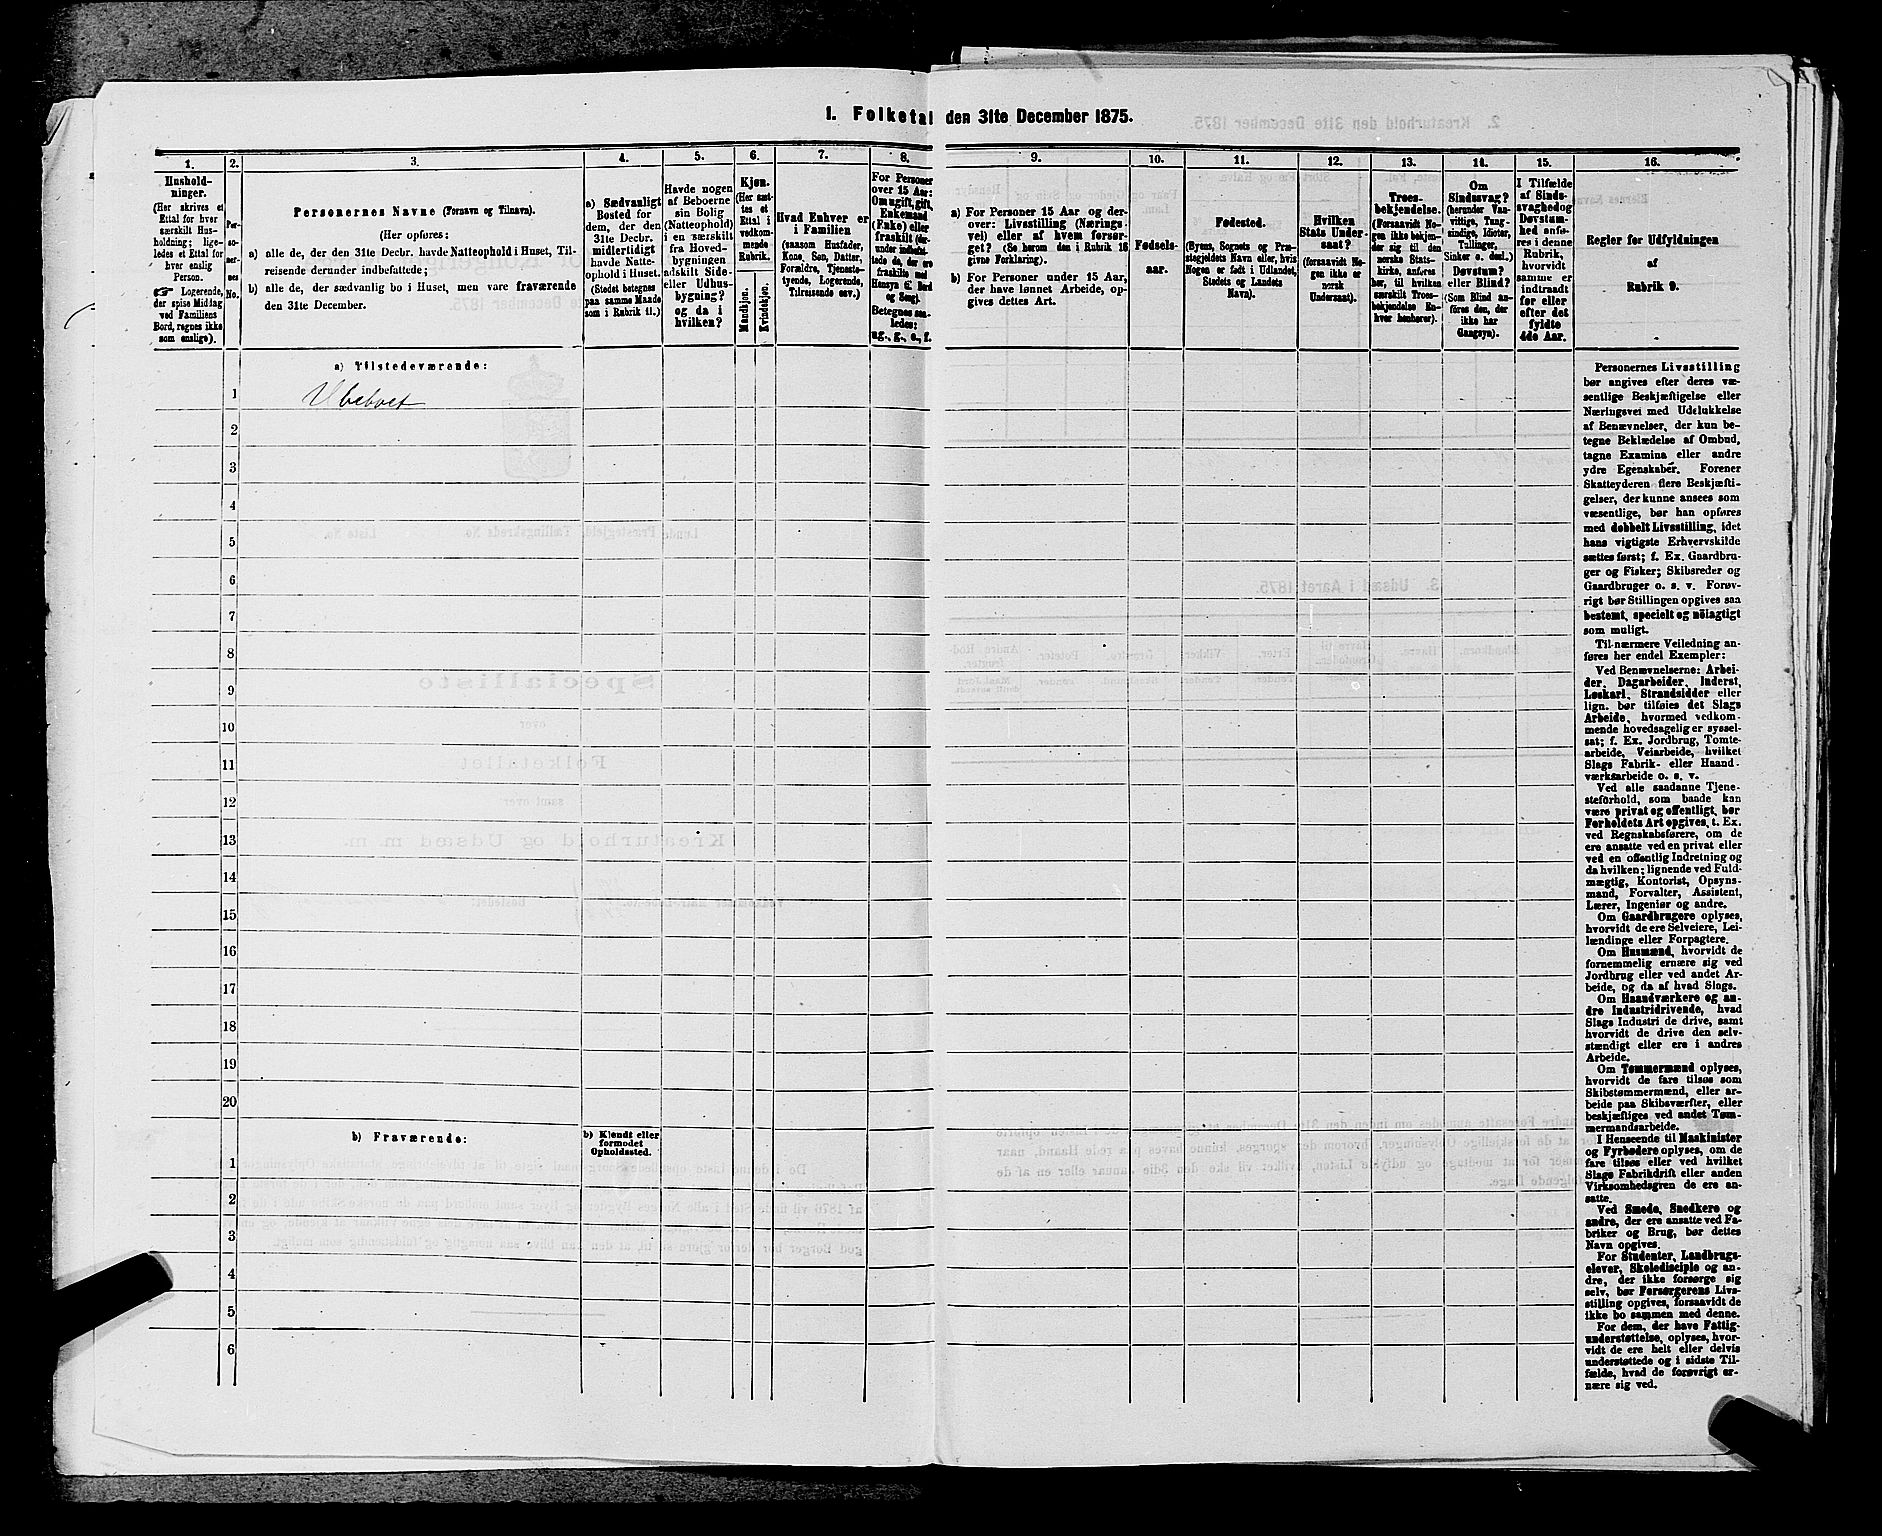 1. Folketal den 31te December 1875.
1.
Hushold-
ninger.
(Her skrives et
Ettal for hver
særskilt Hus-
holdning; lige-
ledes et Ettal for
hver enslig
Person.
☞ Logerende,
der spise Middag
ved Familiens
Bord, regnes ikke
som enslige).
2.
Per-
so-
ner-
nes
No.
3.
Personernes Navne (Fornavn og Tilnavn).
(Her opføres:
a) alle de, der den 31te Decbr. havde Natteophold i Huset, Til-
reisende derunder indbefattede;
b) alle de, der sædvanlig bo i Huset, men vare fraværende
den 31te December.
4.
a) Sædvanligt
Bosted for
dem, der den
31te Decbr.
midlertidigt
havde Natte-
ophold i Huset.
(Stedet betegnes
paa samme Maade
som i Rubrik 11.)
5.
Havde nogen
af Beboerne
sin Bolig
(Natteophold)
i en særskilt
fra Hoved-
bygningen
adskilt Side-
eller Udhus-
bygning?
og da i
hvilken?
6.
Kjøn.
(Her sæt-
tes et
Ettal i
vedkom-
mende
Rubrik.
Mandkjøn.
Kvindekjøn.
7.
Hvad Enhver er
i Familien
(saasom Husfader,
Kone, Søn, Datter,
Forældre, Tjeneste-
tyende, Logerende,
Tilreisende osv.)
8.
For Personer
over 15 Aar:
Om ugift, gift,
Enkemand
(Enke) eller
fraskilt (der-
under indbefat-
tede de, der ere
fraskilte med
Hensyn til Bord
og Seng).
Betegnes saa-
ledes:
ug., g., e., f.
9.
a) For Personer 15 Aar og der-
over: Livsstilling (Nærings-
vei) eller af hvem forsør-
get? (Se herom den i Rubrik 16
givne Forklaring).
b) For Personer under 15 Aar,
der have lønnet Arbeide, op-
gives dettes Art.
10.
Fødsels-
aar.
11.
Fødested.
(Byens, Sognets og Præ-
stegjeldets Navn eller, hvis
Nogen er født i Udlandet,
Stedets og Landets
Navn).
12.
Hvilken
Stats Under-
saat?
(forsaavidt No-
gen ikke er
norsk
Undersaat).
13.
Troes-
bekjendelse.
(Forsaavidt No-
gen ikke bekjen-
der sig til den
norske Stats-
kirke, anføres
her, til hvilken
særskilt Troes-
bekjendelse En-
hver henhører).
14.
Om
Sindssvag?
(herunder Van-
vittige, Tung-
sindige, Idioter,
Tullinger,
Sinker o. desl.)
Døvstum?
eller Blind?
(Som Blind an-
føres den, der
ikke har
Gangsyn).
15.
I Tilfælde
af Sinds-
svaghed og
Døvstum-
hed anfø-
res i denne
Rubrik,
hvorvidt
samme er
indtraadt
før eller
efter det
fyldte
4de Aar.
16.
Regler for Udfyldningen
af
Rubrik 9.
a) Tilstedeværende:
1 Ubeboet
2
3
4
5
6
7
8
9
10
11
12
13
14
15
16
17
18
19
20
b) Fraværende:
b) Kjendt eller
formodet
Opholdssted.
1
2
3
4
5
6
Personernes Livsstilling
bør angives efter deres væ-
sentlige Beskjæftigelse eller
Næringsvei med Udelukkelse
af Benævnelser, der kun be-
tegne Beklædelse af Ombud,
tagne Examina eller andre
ydre Egenskaber. Forener
Skatteyderen flere Beskjæfti-
gelser, der kunne ansees som
væsentlige, bør han opføres
med dobbelt Livsstilling, idet
hans vigtigste Erhvervskilde
sættes først; f. Ex. Gaardbru-
ger og Fisker; Skibsreder og
Gaardbruger o. s. v. Forøv-
rigt bør Stillingen opgives saa
bestemt, specielt og nöiagtigt
som muligt.
Til nærmere Veiledning an-
føres her endel Exempler:
Ved Benævnelserne: Arbei-
der, Dagarbeider, Inderst,
Løskarl, Strandsidder eller
lign. bør tilføies det Slags
Arbeide, hvormed vedkom-
mende hovedsagelig er syssel-
sat; f. Ex. Jordbrug, Tomte-
arbeide, Veiarbeide, hvilket
Slags Fabrik- eller Haand-
værksarbeide o. s. v.
Ved alle saadanne Tjene-
steforhold, som baade kan
være privat og offentligt, bør
Forholdets Art opgives, t. Ex.
ved Regnskabsførere, om de
ere ansatte ved en privat eller
ved en offentlig Indretning og
da hvilken; lignende ved Fuld-
mægtig, Kontorist, Opsyns-
mand, Forvalter, Assistent,
Lærer, Ingeniør og andre.
Om Gaardbrugere oplyses,
hvorvidt de ere Selveiere, Lei-
lændinge eller Forpagtere.
Om Husmænd, hvorvidt de
fornemmelig ernære sig ved
Jordbrug eller ved andet Ar-
beide, og da af hvad Slags.
Om Haandværkere og an-
dre Industridrivende, hvad
Slags Industri de drive, samt
hvorvidt de drive den selv-
stændigt eller ere i andres
Arbeide.
Om Tømmermænd oplyses,
hvorvidt de fare tilsøs som
Skibstømmermænd, eller ar-
beide paa Skibsværfter, eller
beskjæftiges ved andet Tøm-
mermandsarbeide.
I Henseende til Maskinister
og Fyrbødere oplyses, om de
fare tilsøs eller ved hvilket
Slags Fabrikdrift eller anden
Virksomhedsgren de ere an-
satte.
Ved Smede, Snedkere og
andre, der ere ansatte ved Fa-
briker og Brug, bør dettes
Navn opgives.
For Studenter, Landbrugs-
elever, Skoledisciple og an-
dre, der ikke forsørge sig
selv, bør Forsørgerens Livs-
stilling opgives, forsaavidt de
ikke bo sammen med denne.
For dem, der have Fattig-
understøttelse, oplyses, hvor-
vidt de ere helt eller delvis
understøttede og i sidste Til-
fælde, hvad de forøvrigt er-
nære sig ved.